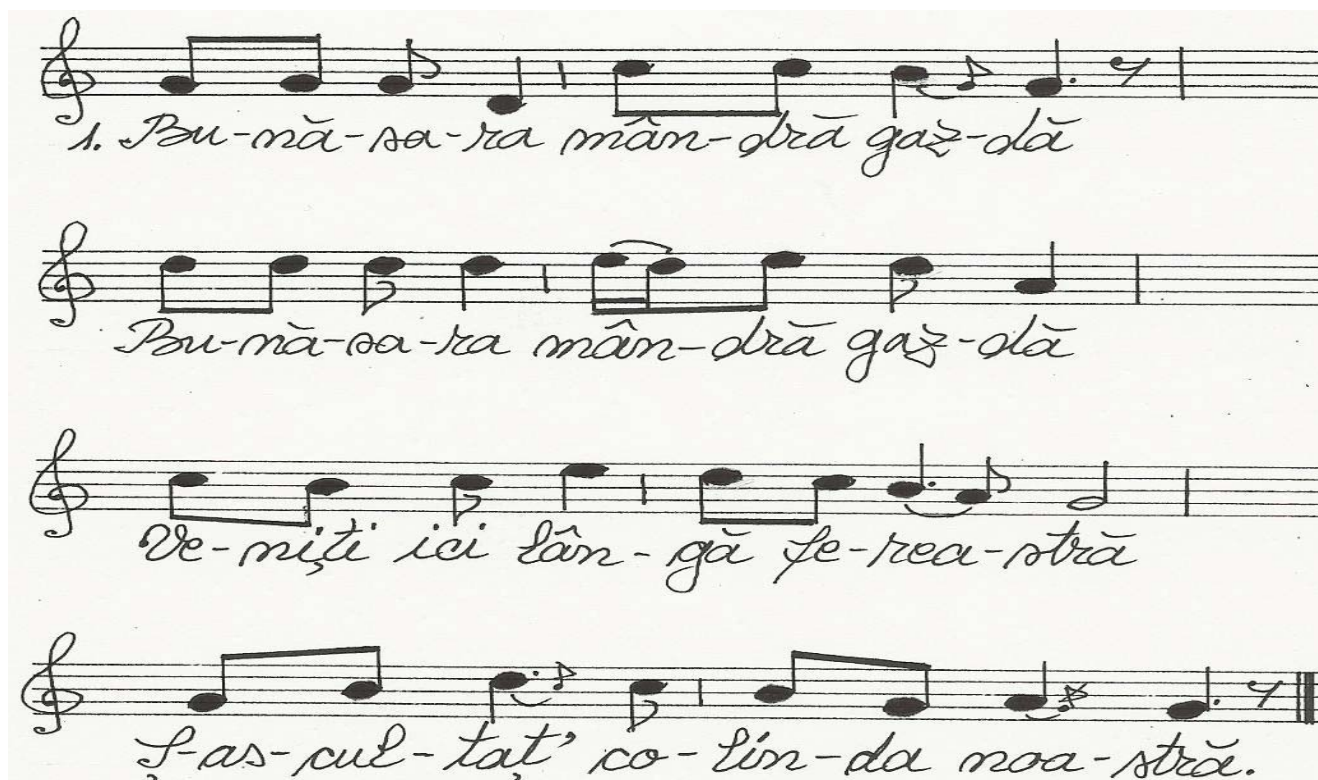 1. Bu-nă-sa-ra mân-dră gaz-dă
Bu-nă-sa-ra mân-dră gaz-dă
Ve-niţi ici lân-gă fe-rea-stră
Ş-as-cul-taţ' co-lin-da noa-stră.